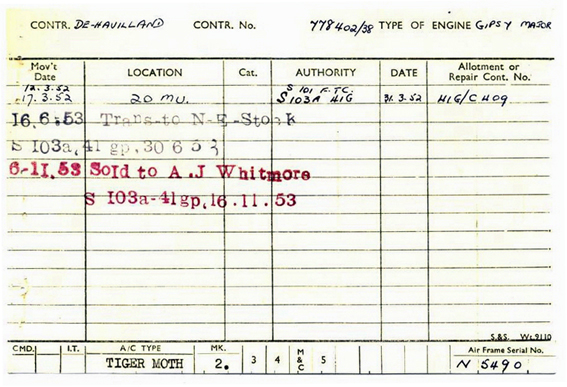 CONTR. DE-HAVILLAND CONTR. No. 778402/38 TYPE OF ENGINE GIPSY MAJOR
Mov't Date LOCATION Cat. AUTHORITY DATE Allotment or Repair Cont. No.
12.3.52 S 101 F.T.C.
17.3.52 20 MU. S 103A H1G 31.3.52 H1G/CH09
16.6.53 Trans-to N-E-Stock
S 103a,41 gp,30 6 53
6-11.53 Sold to A.J Whitmore
S 103a-41gp,16.11.53
S.&S. Wt.9110
CMD. I.T. A/C TYPE MK. 3 4 M & C 5 Air Frame Serial No.
TIGER MOTH 2. N 5490